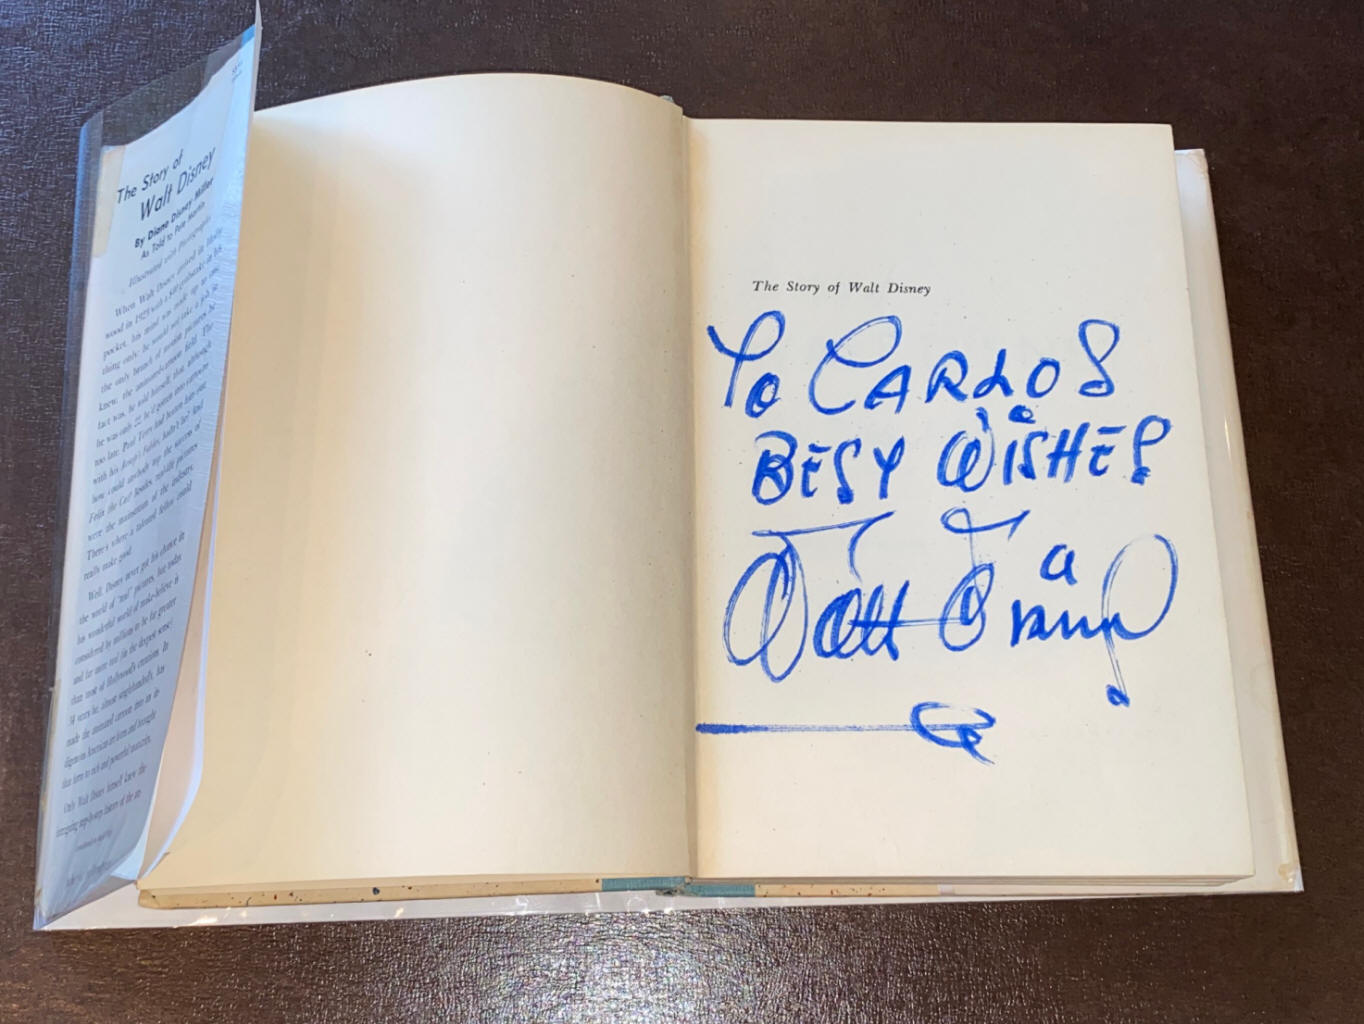 The Story of
Walt Disney
By Diane Disney Miller
As Told to Pete Martin
Illustrated with Photographs
When Walt Disney arrived in Holly-
wood in 1923 with a $40 grubstake in his
pocket, his mind was made up to one
thing only: he would not take a job in
the only branch of motion pictures he
knew, the animated-cartoon field. The
fact was, he told himself, that, although
he was only 22, he'd gotten into cartoons
too late. Paul Terry had beaten him out
with his Aesop's Fables, hadn't he? And
how could anybody top the success of
Felix the Cat? Besides, real-life pictures
were the mainstream of the industry.
There's where a talented fellow could
really make good.
Well, Disney never got his chance in
the world of "real" pictures, but today
his wonderful world of make-believe is
considered by millions to be far greater
and far more real (in the deepest sense)
than most of Hollywood's creation. In
34 years he, almost singlehandedly, has
made the animated cartoon into an in-
digenous American art form and brought
that form to rich and powerful maturity.
Only Walt Disney himself knew the
intriguing step-by-step history of the
The Story of Walt Disney
To CARLOS
BEST WISHES
Walt Disney